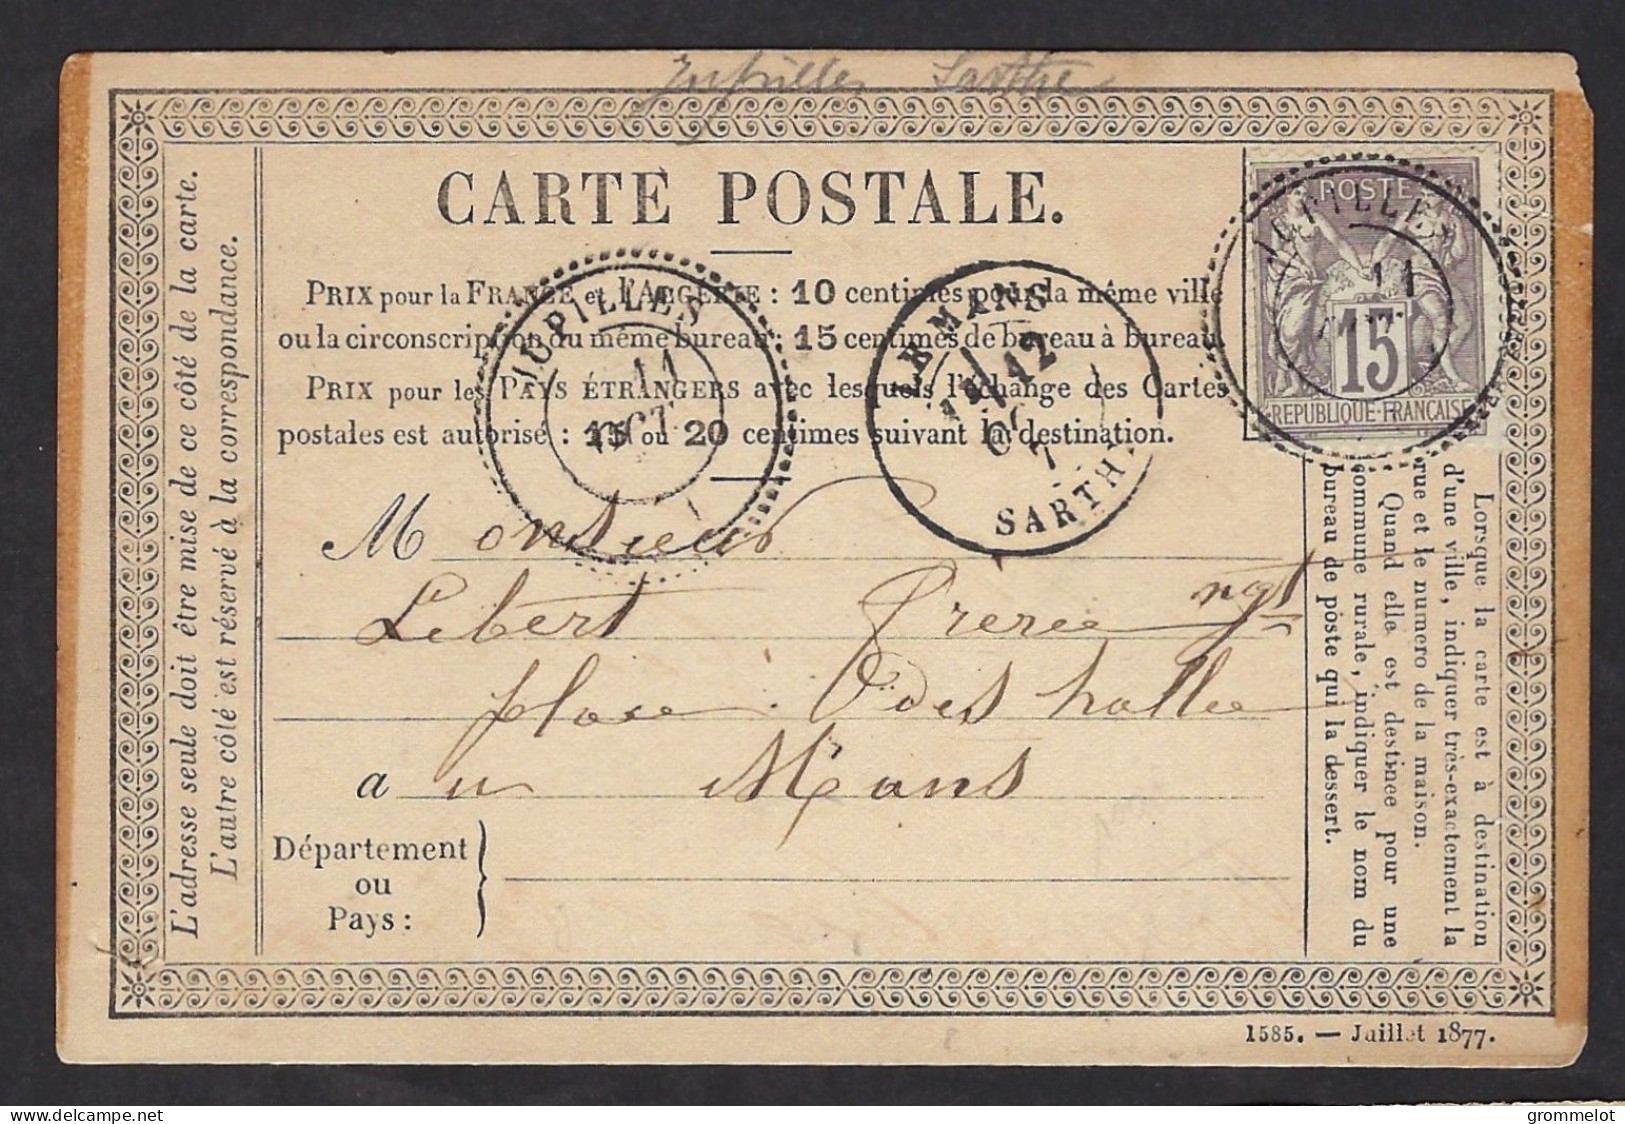 Jupilles Sarthe
CARTE POSTALE.
PRIX pour la FRANCE et l'ALGÉRIE : 10 centimes pour la même ville
ou la circonscription du même bureau ; 15 centimes de bureau à bureau.
PRIX pour les PAYS ÉTRANGERS avec lesquels l'échange des Cartes
postales est autorisé : 15 ou 20 centimes suivant la destination.
JUPILLES
11
OCT
LE MANS
12
OC
7
SARTHE
POSTE
15
REPUBLIQUE FRANCAISE
JUPILLES
11
Monsieur
Lebert ngt
place des halles
a u Mans
Département
ou
Pays :
L'adresse seule doit être mise de ce côté de la carte.
L'autre côté est réservé à la correspondance.
Lorsque la carte est à destination
d'une ville, indiquer très-exactement la
rue et le numero de la maison.
Quand elle est destinée pour une
commune rurale, indiquer le nom du
bureau de poste qui la dessert.
1585. — Juillet 1877.
delcampe.net
grommelot